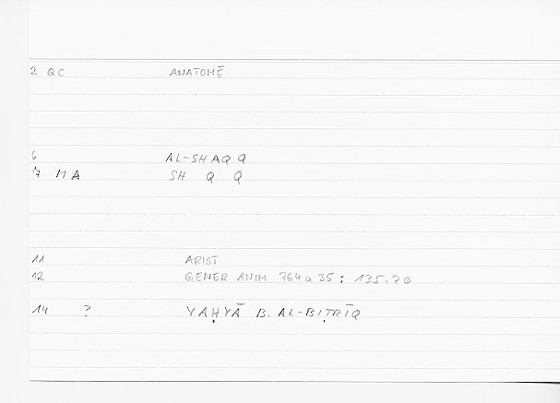 2 QC ANATOMĒ
6 AL-SHAQQ
7 MA SH Q Q
11 ARIST
12 GENER ANIM 764a35 : 135.20
14 ? YAḤYĀ B. AL-BIṬRĪQ